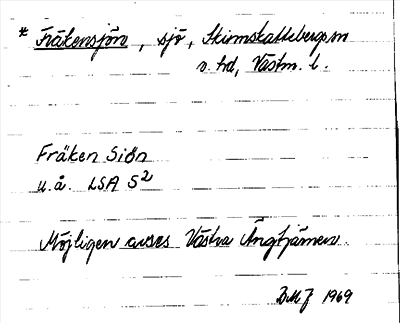 * Fräkensjön, sjö, Skinnskattebergs sn
s. hd, Västm. l.
Fräken Siön
u.å. LSA S2
Möjligen avses Västra Ängtjärnen.
BMJ 1969